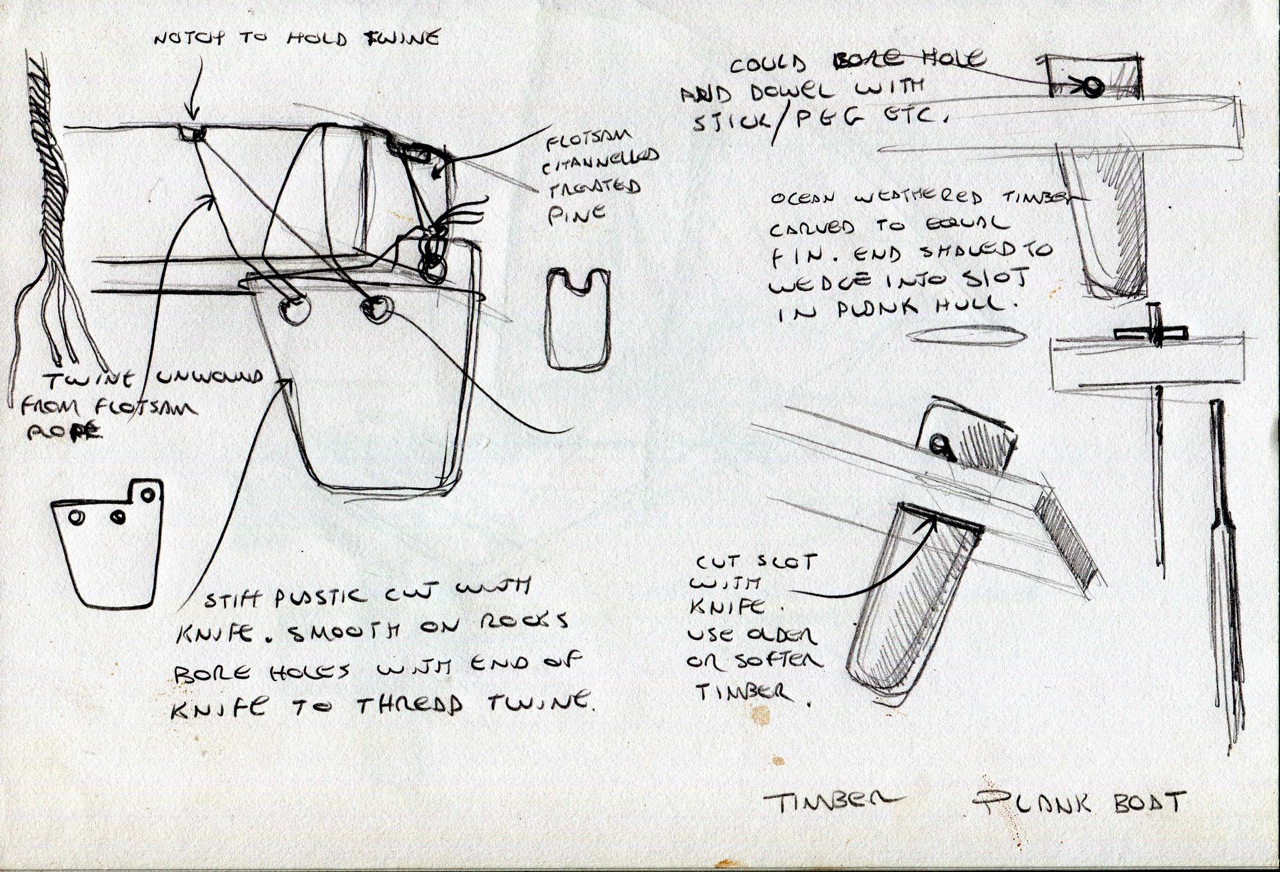 NOTCH TO HOLD TWINE
FLOTSAM
CHANNELLED
TREATED
PINE
TWINE UNWOUND
FROM FLOTSAM
ROPE
STIFF PLASTIC CUT WITH
KNIFE. SMOOTH ON ROCKS
BORE HOLES WITH END OF
KNIFE TO THREAD TWINE.
COULD BORE HOLE
AND DOWEL WITH
STICK/PEG ETC.
OCEAN WEATHERED TIMBER
CARVED TO EQUAL
FIN. END SHAPED TO
WEDGE INTO SLOT
IN PLANK HULL.
CUT SLOT
WITH
KNIFE.
USE OLDER
OR SOFTER
TIMBER.
TIMBER PLANK BOAT